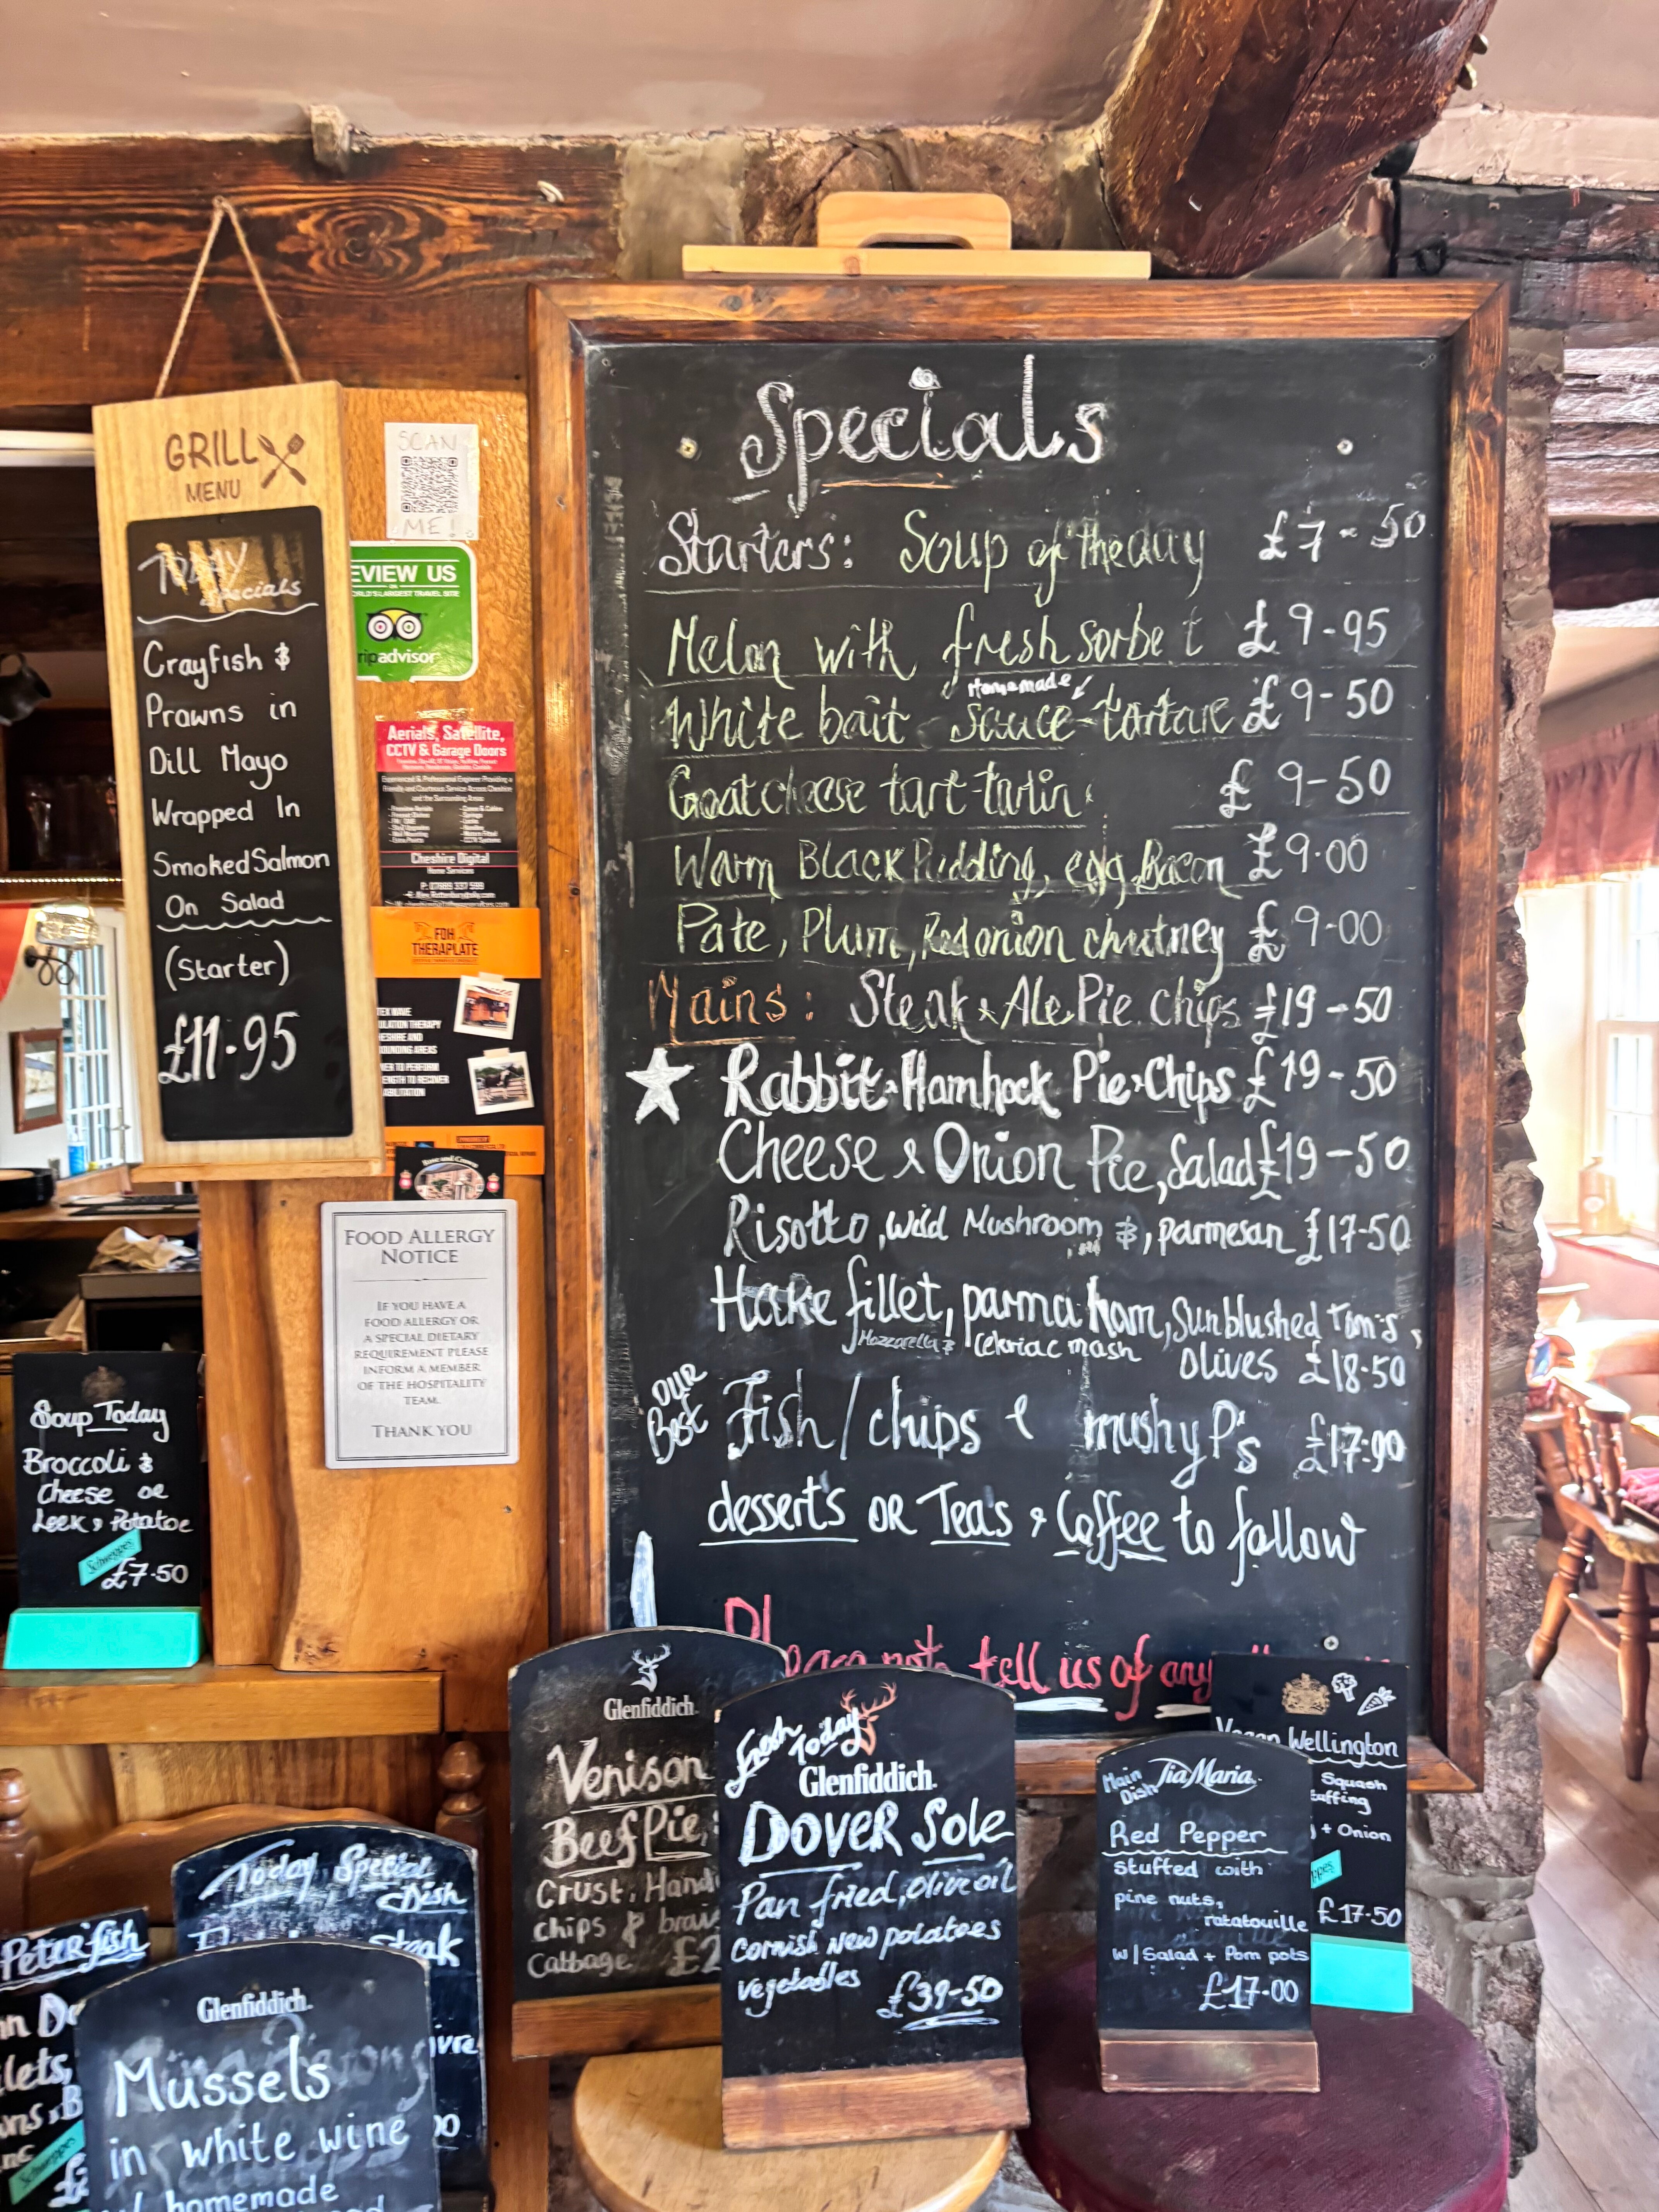 GRILL
MENU
TODAY
Specials
Crayfish &
Prawns in
Dill Mayo
Wrapped In
Smoked Salmon
On Salad
(Starter)
£11.95
SCAN
ME!
EVIEW US
ORLD'S LARGEST TRAVEL SITE
ripadvisor
Aerials, Satellite,
CCTV & Garage Doors
Experienced & Professional Engineer Providing a
Friendly and Courteous Service Across Cheshire
and the Surrounding Areas
Cheshire Digital
Home Services
FDH
THERAPLATE
Rose and Crown
FOOD ALLERGY
NOTICE
IF YOU HAVE A
FOOD ALLERGY OR
A SPECIAL DIETARY
REQUIREMENT PLEASE
INFORM A MEMBER
OF THE HOSPITALITY
TEAM.
THANK YOU
Specials
Starters: Soup of the day £7-50
Melon with fresh sorbet £9-95
Homemade
White bait - sauce-tartare £9-50
Goat cheese tart-tatin £9-50
Warm Black Pudding, egg, Bacon £9.00
Pate, Plum, Red onion chutney £9.00
Mains: Steak & Ale Pie chips £19-50
Rabbit & Hamhock Pie & Chips £19-50
Cheese & Onion Pie, Salad £19-50
Risotto, wild Mushroom &, parmesan £17-50
Hake fillet, parma ham, Sunblushed Tom's,
Mozzarella & Celeriac mash olives £18.50
OUR
Best
Fish/chips & mushy P's £17.90
desserts or Tea's & Coffee to follow
Please note tell us of any
Soup Today
Broccoli &
Cheese or
Leek & Potatoe
Schweppes
£7.50
Glenfiddich
Venison
Beef Pie,
Crust, Hand
chips & brais
Cabbage £2
Fresh
Today
Glenfiddich
DOVER Sole
Pan fried, olive oil
Cornish New potatoes
vegetables
£39-50
Main
Dish
Tia Maria
Red Pepper
stuffed with
pine nuts,
ratatouille
w/Salad + Pom pots
£17.00
Vegan Wellington
Squash
tuffing
+ Onion
ppes
£17.50
Today Special
Dish
steak
ivre
Peter fish
lets,
Schweppes
Glenfiddich
Mussels
in white wine
homemade